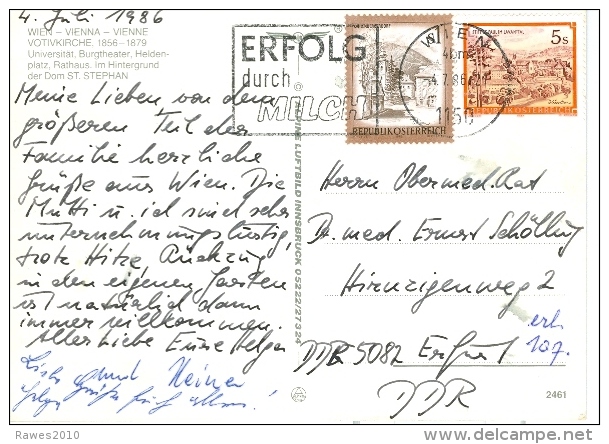 4. Juli 1986
WIEN – VIENNA – VIENNE
VOTIVKIRCHE. 1856–1879
Universität, Burgtheater, Helden-
platz, Rathaus. im Hintergrund
der Dom ST. STEPHAN
Meine Lieben von dem
größeren Teil der
Familie herzliche
Grüße aus Wien. Die
Mutti u. ich sind sehr
unternehmungslustig,
trotz Hitze. Rückzug
in den eigenen Garten
ist natürlich dann
immer willkommen.
Alles Liebe Eure Helga
und Heiner
ERFOLG
durch
MILCH
S1
REPUBLIK ÖSTERREICH
WIEN
4.7.86
1150
5S
STIFT ST. PAUL IM LAVANTTAL
REPUBLIK ÖSTERREICH
ALPINE LUFTBILD INNSBRUCK 05222/27324
Herrn Obermed. Rat
Dr. med. Ernst Schölling
Hirnzigenweg 2
DDR 5082 Erfurt
DDR
erh.
10.7.
2461
Rawes2010
delcampe.net